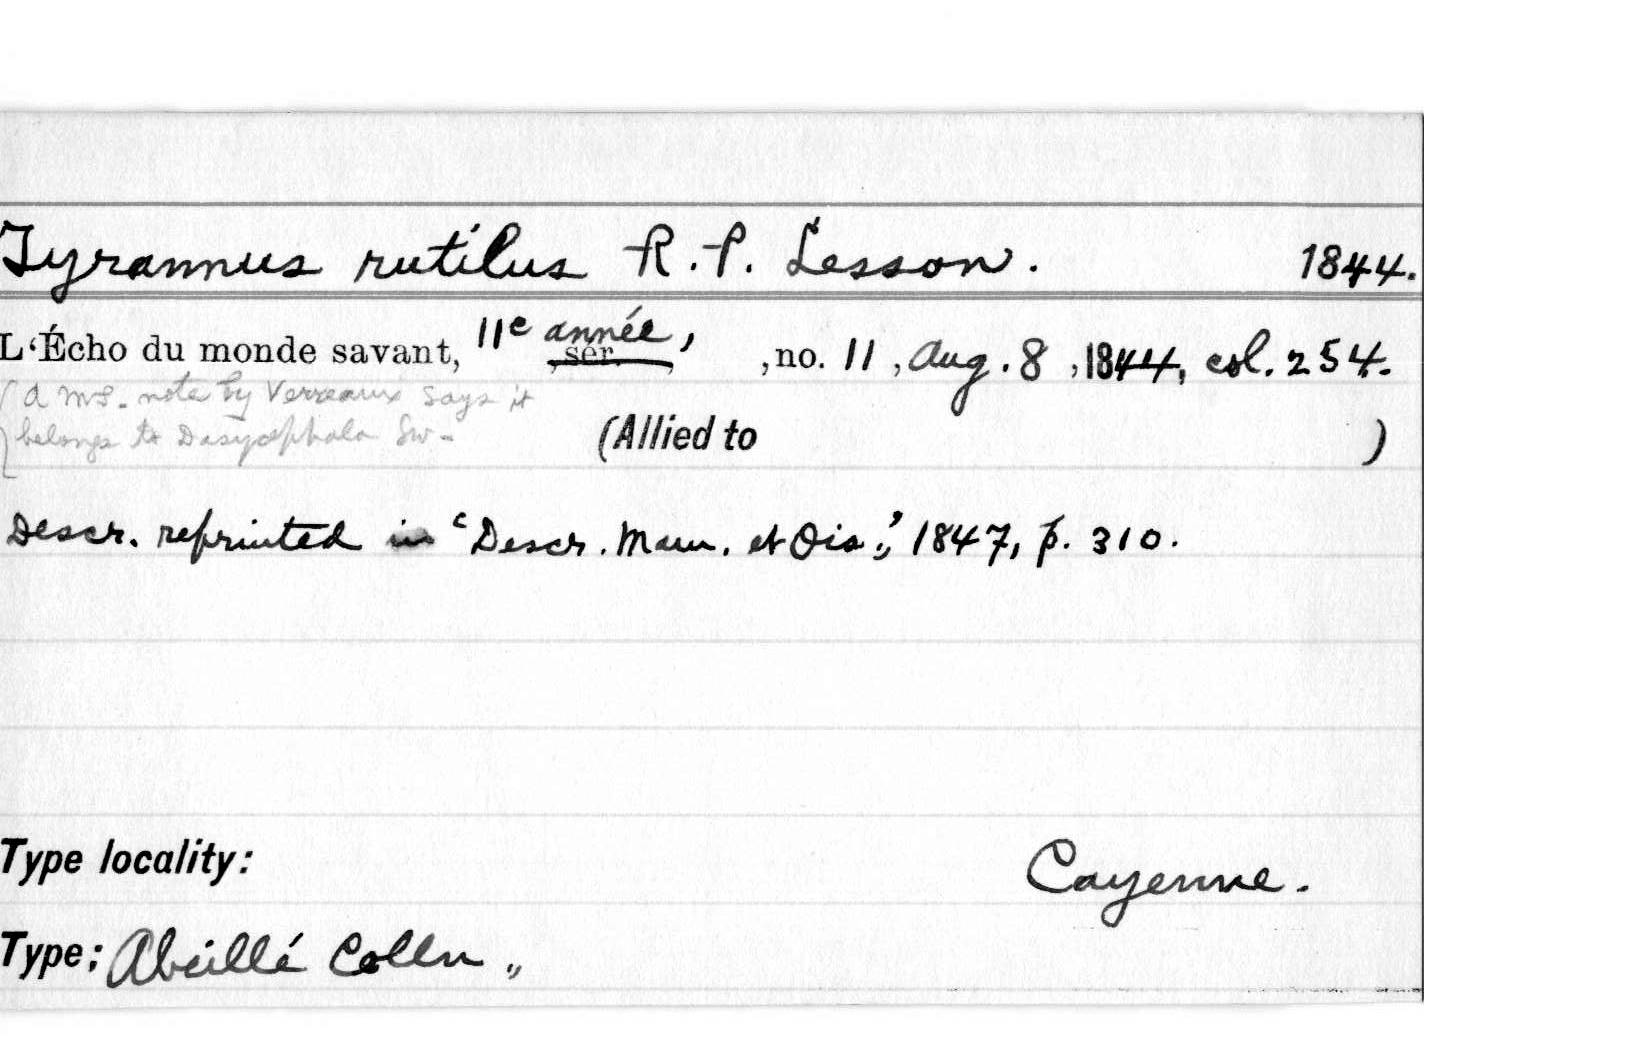 Tyrannus rutilus R.P. Lesson. 1844.
L‘Écho du monde savant, 11e année, , sér. , , no. 11 , Aug. 8 , 1844, col. 254.
(A MS. note by Verreaux says it
belongs to Dasycephala Sw-
(Allied to )
Descr. reprinted in ‘Descr. Mam. et Ois.,’ 1847, p. 310.
Type locality: Cayenne.
Type; Abeillé Colln „